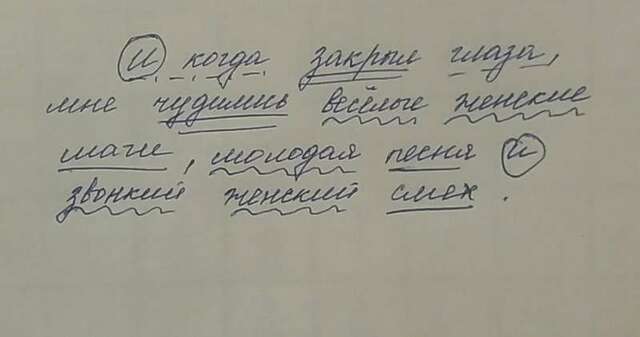 И когда закрыл глаза,
мне чудились весёлые женские
шаги, молодая песня и
звонкий женский смех.